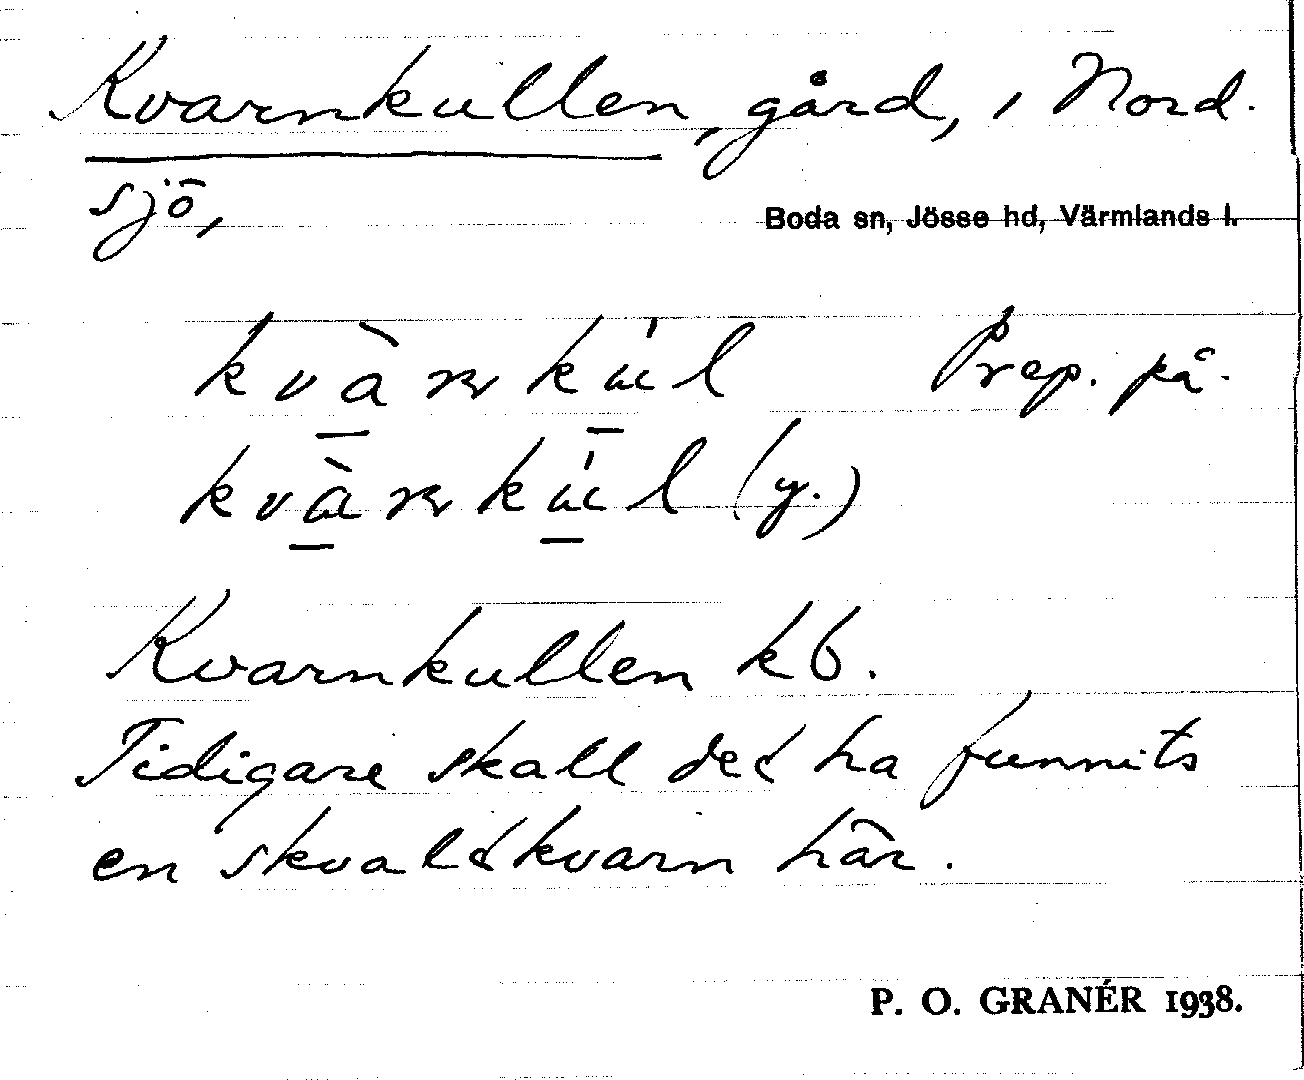 Kvarnkullen, gård, i Nord-
sjö,
Boda sn, Jösse hd, Värmlands l.
Prep. på.
(y.)
Kvarnkullen kb.
Tidigare skall det ha funnits
en skvaltkvarn här.
P. O. GRANÉR 1938.